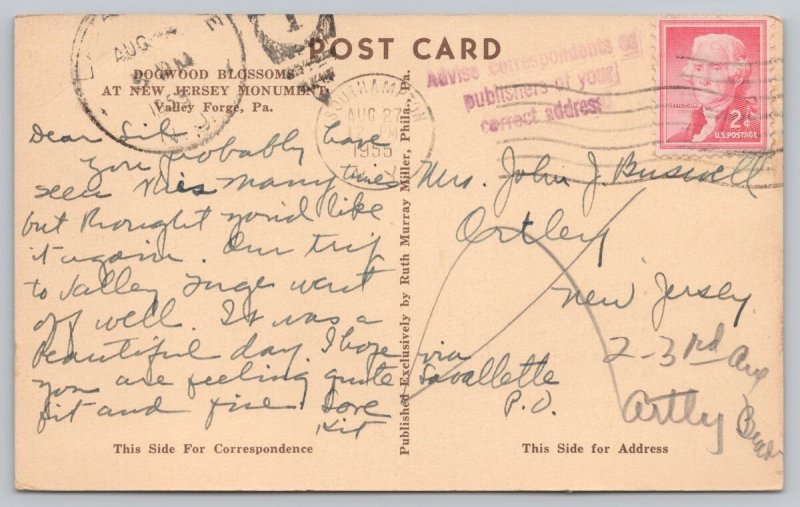 POST CARD
DOGWOOD BLOSSOMS
AT NEW JERSEY MONUMENT
Valley Forge, Pa.
AUG
SOUTHAMPTON
AUG 27
PM
1955
Advise correspondents or
publishers of your
correct address
2¢
U.S. POSTAGE
Dear Sil-
You probably have
seen this many times
but thought you'd like
it again. Our trip
to Valley Forge went
off well. It was a
beautiful day. I hope
you are feeling quite
fit and fine. Love
Kit
Published Exclusively by Ruth Murray Miller, Phila., Pa.
Mrs. John J. Buswell
Ortley
New Jersey
via
Lavallette
P.O.
2-3rd Ave
Artley Beach
This Side For Correspondence
This Side for Address